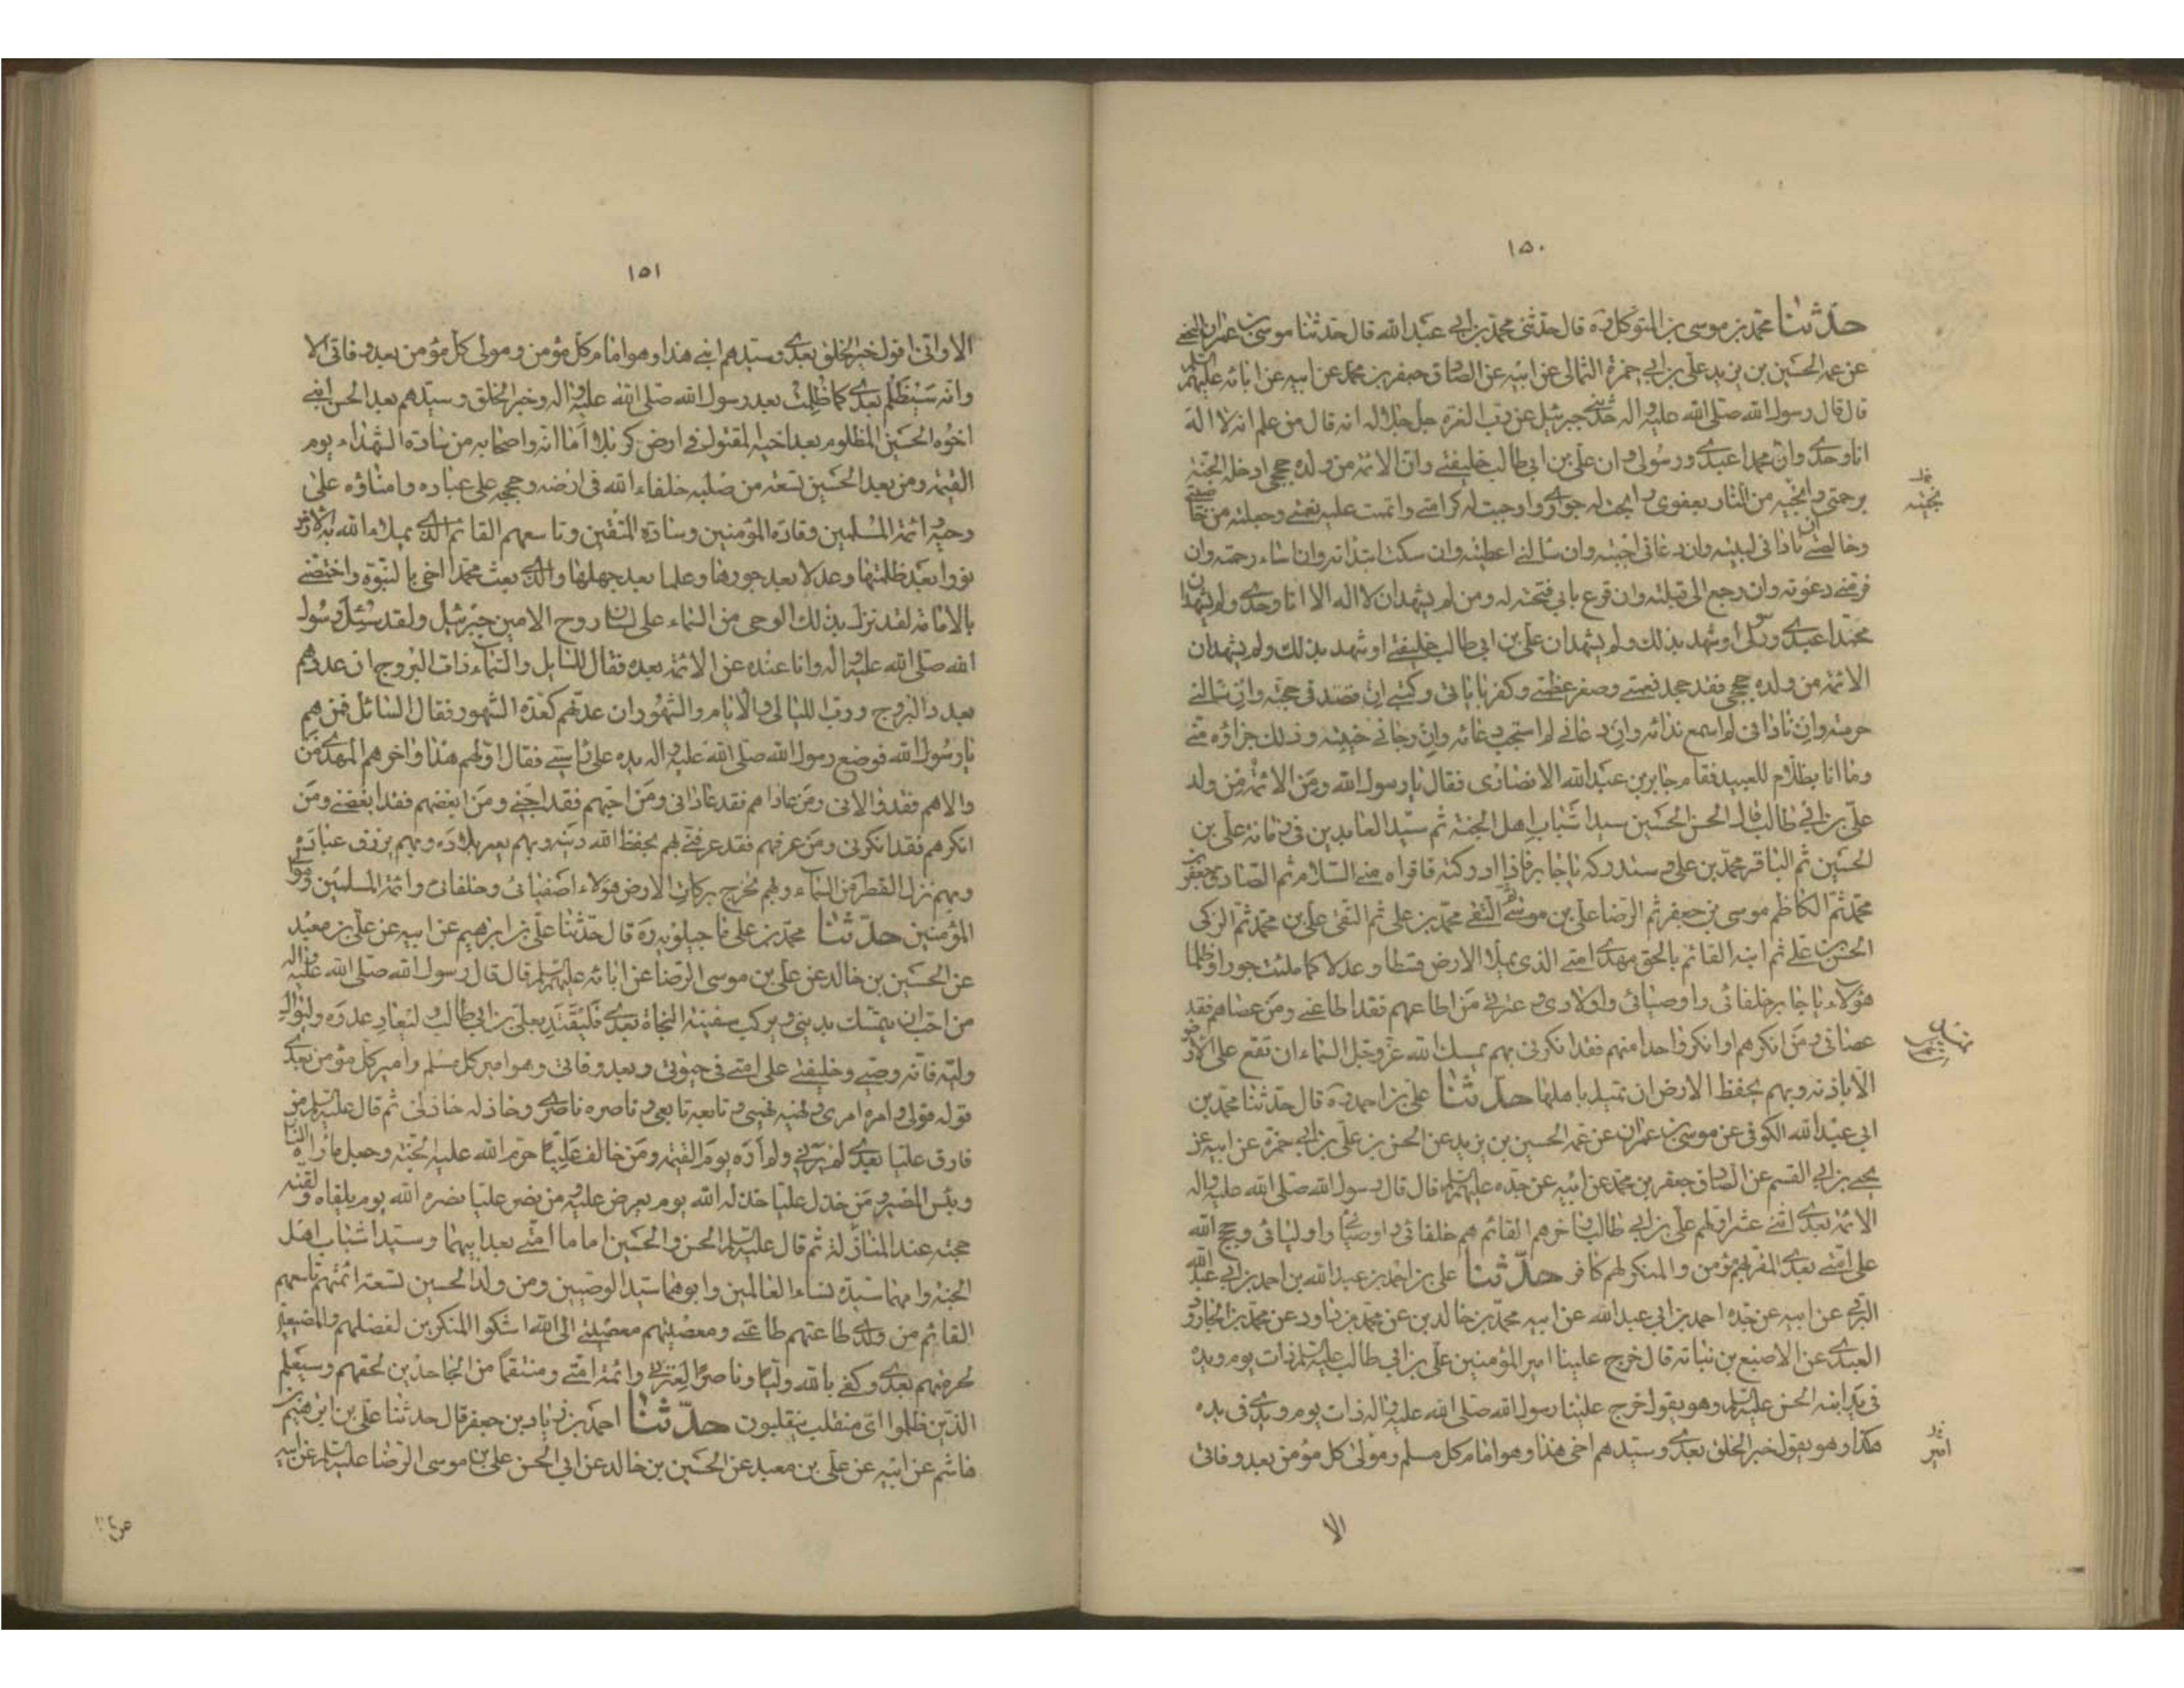 ١٥٠
حدّثنا محمّد بن موسى بن المتوكل ره قال حدثنى محمّد بن ابى عبد الله قال حدثنا موسى بن عمران النخعى
عن عمه الحسين بن يزيد على بن ابى حمزة الثمالى عن ابيه عن الصادق جعفر بن محمد عن ابيه عن ابائه عليهم السلم
قال قال رسول الله صلى الله عليه واله حدثنى جبرئيل عن رب العزة جل جلاله انه قال من علم انه لا اله
انا وحدى وان محمدا عبدى ورسولى وان على بن ابى طالب خليفتى وان الائمة من ولده حججى ادخله الجنة
برحمتى وانجيه من النار بعفوى وابحت له جوارى واوجبت له كرامتى واتممت عليه نعمتى وجعلته من خاصتى
وخالصتى ان نادانى لبيته وان دعانى اجبته وان سئالنى اعطيته وان سكت ابتدأته وان اساء رحمته وان
فر منى دعوته وان رجع الى قبلته وان قرع بابى فتحته له ومن لم يشهد ان لا اله الا انا وحدى ولم يشهد ان
محمدا عبدى ورسولى او شهد بذلك ولم يشهد ان على بن ابى طالب خليفتى او شهد بذلك ولم يشهد ان
الائمة من ولده حججى فقد جحد نعمتى وصغر عظمتى وكفر باياتى وكتبى ان قصدنى حجبته وان سئالنى
حرمته وان نادانى لم اسمع ندائه وان دعانى لم استجب دعائه وان رجانى خيبته وذلك جزاؤه منى
وما انا بظلام للعبيد فقام جابر بن عبد الله الانصارى فقال يا رسول الله ومن الائمة من ولد
على بن ابى طالب قال الحسن والحسين سيدا شباب اهل الجنة ثم سيد العابدين فى زمانه على بن
الحسين ثم الباقر محمد بن على وستدركه يا جابر فاذا ادركته فاقرأه منى السلام ثم الصادق جعفر بن
محمد ثم الكاظم موسى بن جعفر ثم الرضا على بن موسى ثم التقى محمد بن على ثم النقى على بن محمد ثم الزكى
الحسن بن على ثم ابنه القائم بالحق مهدى امتى الذى يملأ الارض قسطا وعدلا كما ملئت جورا وظلما
هؤلاء يا جابر خلفائى واوصيائى واولادى وعترتى من اطاعهم فقد اطاعنى ومن عصاهم فقد
عصانى ومن انكرهم او انكر واحدا منهم فقد انكرنى بهم يمسك الله عز وجل السماء ان تقع على الارض
الا باذنه وبهم يحفظ الارض ان تميد باهلها حدّثنا على بن احمد ره قال حدثنا محمد بن
ابى عبد الله الكوفى عن موسى بن عمران عن عمه الحسين بن يزيد عن الحسن بن على بن ابى حمزة عن ابيه عن
يحيى بن ابى القسم عن الصادق جعفر بن محمد عن ابيه عن جده عليهم السلم قال قال رسول الله صلى الله عليه واله
الائمة بعدى اثنى عشر اولهم على بن ابى طالب واخرهم القائم هم خلفائى واوصيائى واوليائى وحجج الله
على امتى بعدى المقر بهم مؤمن والمنكر لهم كافر حدّثنا على بن احمد بن عبد الله بن احمد بن ابى عبد الله
البرقى عن ابيه عن جده احمد بن ابى عبد الله عن ابيه محمد بن خالد بن عن محمد بن داود عن محمد بن الجارود
العبدى عن الاصبغ بن نباته قال خرج علينا امير المؤمنين على بن ابى طالب عليه السلم ذات يوم ويده
فى يد ابنه الحسن عليه السلم وهو يقول خرج علينا رسول الله صلى الله عليه واله ذات يوم ويدى فى يده
هكذا وهو يقول خير الخلق بعدى وسيدهم اخى هذا وهو امام كل مسلم ومولى كل مؤمن بعد وفاتى
الا
امير
١٥١
الا وانى اقول خير الخلق بعدى وسيدهم ابنى هذا وهو امام كل مؤمن ومولى كل مؤمن بعد وفاتى الا
وانه سيظلم بعدى كما ظلمت بعد رسول الله صلى الله عليه واله وخير الخلق وسيدهم بعد الحسن ابنى
اخوه الحسين المظلوم بعد اخيه المقتول فى ارض كربلا اما انه واصحابه من سادة الشهداء يوم
القيمة ومن بعد الحسين تسعة من صلبه خلفاء الله فى ارضه وحججه على عباده وامناؤه على
وحيه ائمة المسلمين وقادة المؤمنين وسادة المتقين وتاسعهم القائم الذى يملأ الله به الارض
نورا بعد ظلمتها وعدلا بعد جورها وعلما بعد جهلها والذى بعث محمدا اخى بالنبوة واختصنى
بالامامة لقد نزل بذلك الوحى من السماء على لسان روح الامين جبرئيل ولقد سئل رسول
الله صلى الله عليه واله وانا عنده عن الائمة بعده فقال للسايل والسماء ذات البروج ان عددهم
بعدد البروج ورب الليالى والايام والشهور ان عدتهم كعدة الشهور فقال السائل فمن هم
يا رسول الله فوضع رسول الله صلى الله عليه واله يده على رأسى فقال اولهم هذا واخرهم المهدى من
والاهم فقد والانى ومن عاداهم فقد عادانى ومن احبهم فقد احبنى ومن ابغضهم فقد ابغضنى ومن
انكرهم فقد انكرنى ومن عرفهم فقد عرفنى بهم يحفظ الله دينه وبهم يعمر بلاده وبهم يرزق عباده
وبهم نزل القطر من السماء وبهم يخرج بركات الارض هؤلاء اصفيائى وخلفائى وائمة المسلمين وموالى
المؤمنين حدّثنا محمد بن على ماجيلويه ره قال حدثنا على بن ابرهيم عن ابيه عن على بن معبد
عن الحسين بن خالد عن على بن موسى الرضا عن ابائه عليهم السلم قال قال رسول الله صلى الله عليه واله
من احب ان يتمسك بدينى ويركب سفينة النجاة بعدى فليقتد بعلى بن ابى طالب وليعاد عدوه وليوال
وليه فانه وصيى وخليفتى على امتى فى حيوتى وبعد وفاتى وهو امير كل مسلم وامير كل مؤمن بعدى
قوله قولى وامره امرى ونهيه نهيى وتابعه تابعى وناصره ناصرى وخاذله خاذلى ثم قال عليه السلم من
فارق عليا بعدى لم يرنى ولم اره يوم القيمة ومن خالف عليا حرم الله عليه الجنة وجعل مأواه النار
وبئس المصير ومن خذل عليا خذله الله يوم يعرض عليه ومن نصر عليا نصره الله يوم يلقاه ولقنه
حجته عند المنازلة ثم قال عليه السلم الحسن والحسين اماما امتى بعد ابيهما وسيدا شباب اهل
الجنة وامهما سيدة نساء العالمين وابوهما سيد الوصيين ومن ولد الحسين تسعة ائمة تاسعهم
القائم من ولدى طاعتهم طاعتى ومعصيتهم معصيتى الى الله اشكو المنكرين لفضلهم والمضيعين
لحرمتهم بعدى وكفى بالله وليا وناصرا لعترتى وائمة امتى ومنتقما من الجاحدين لحقهم وسيعلم
الذين ظلموا اى منقلب ينقلبون حدّثنا احمد بن زياد بن جعفر قال حدثنا على بن ابرهيم بن
هاشم عن ابيه عن على بن معبد عن الحسين بن خالد عن ابى الحسن على بن موسى الرضا عليه السلم عن ابيه